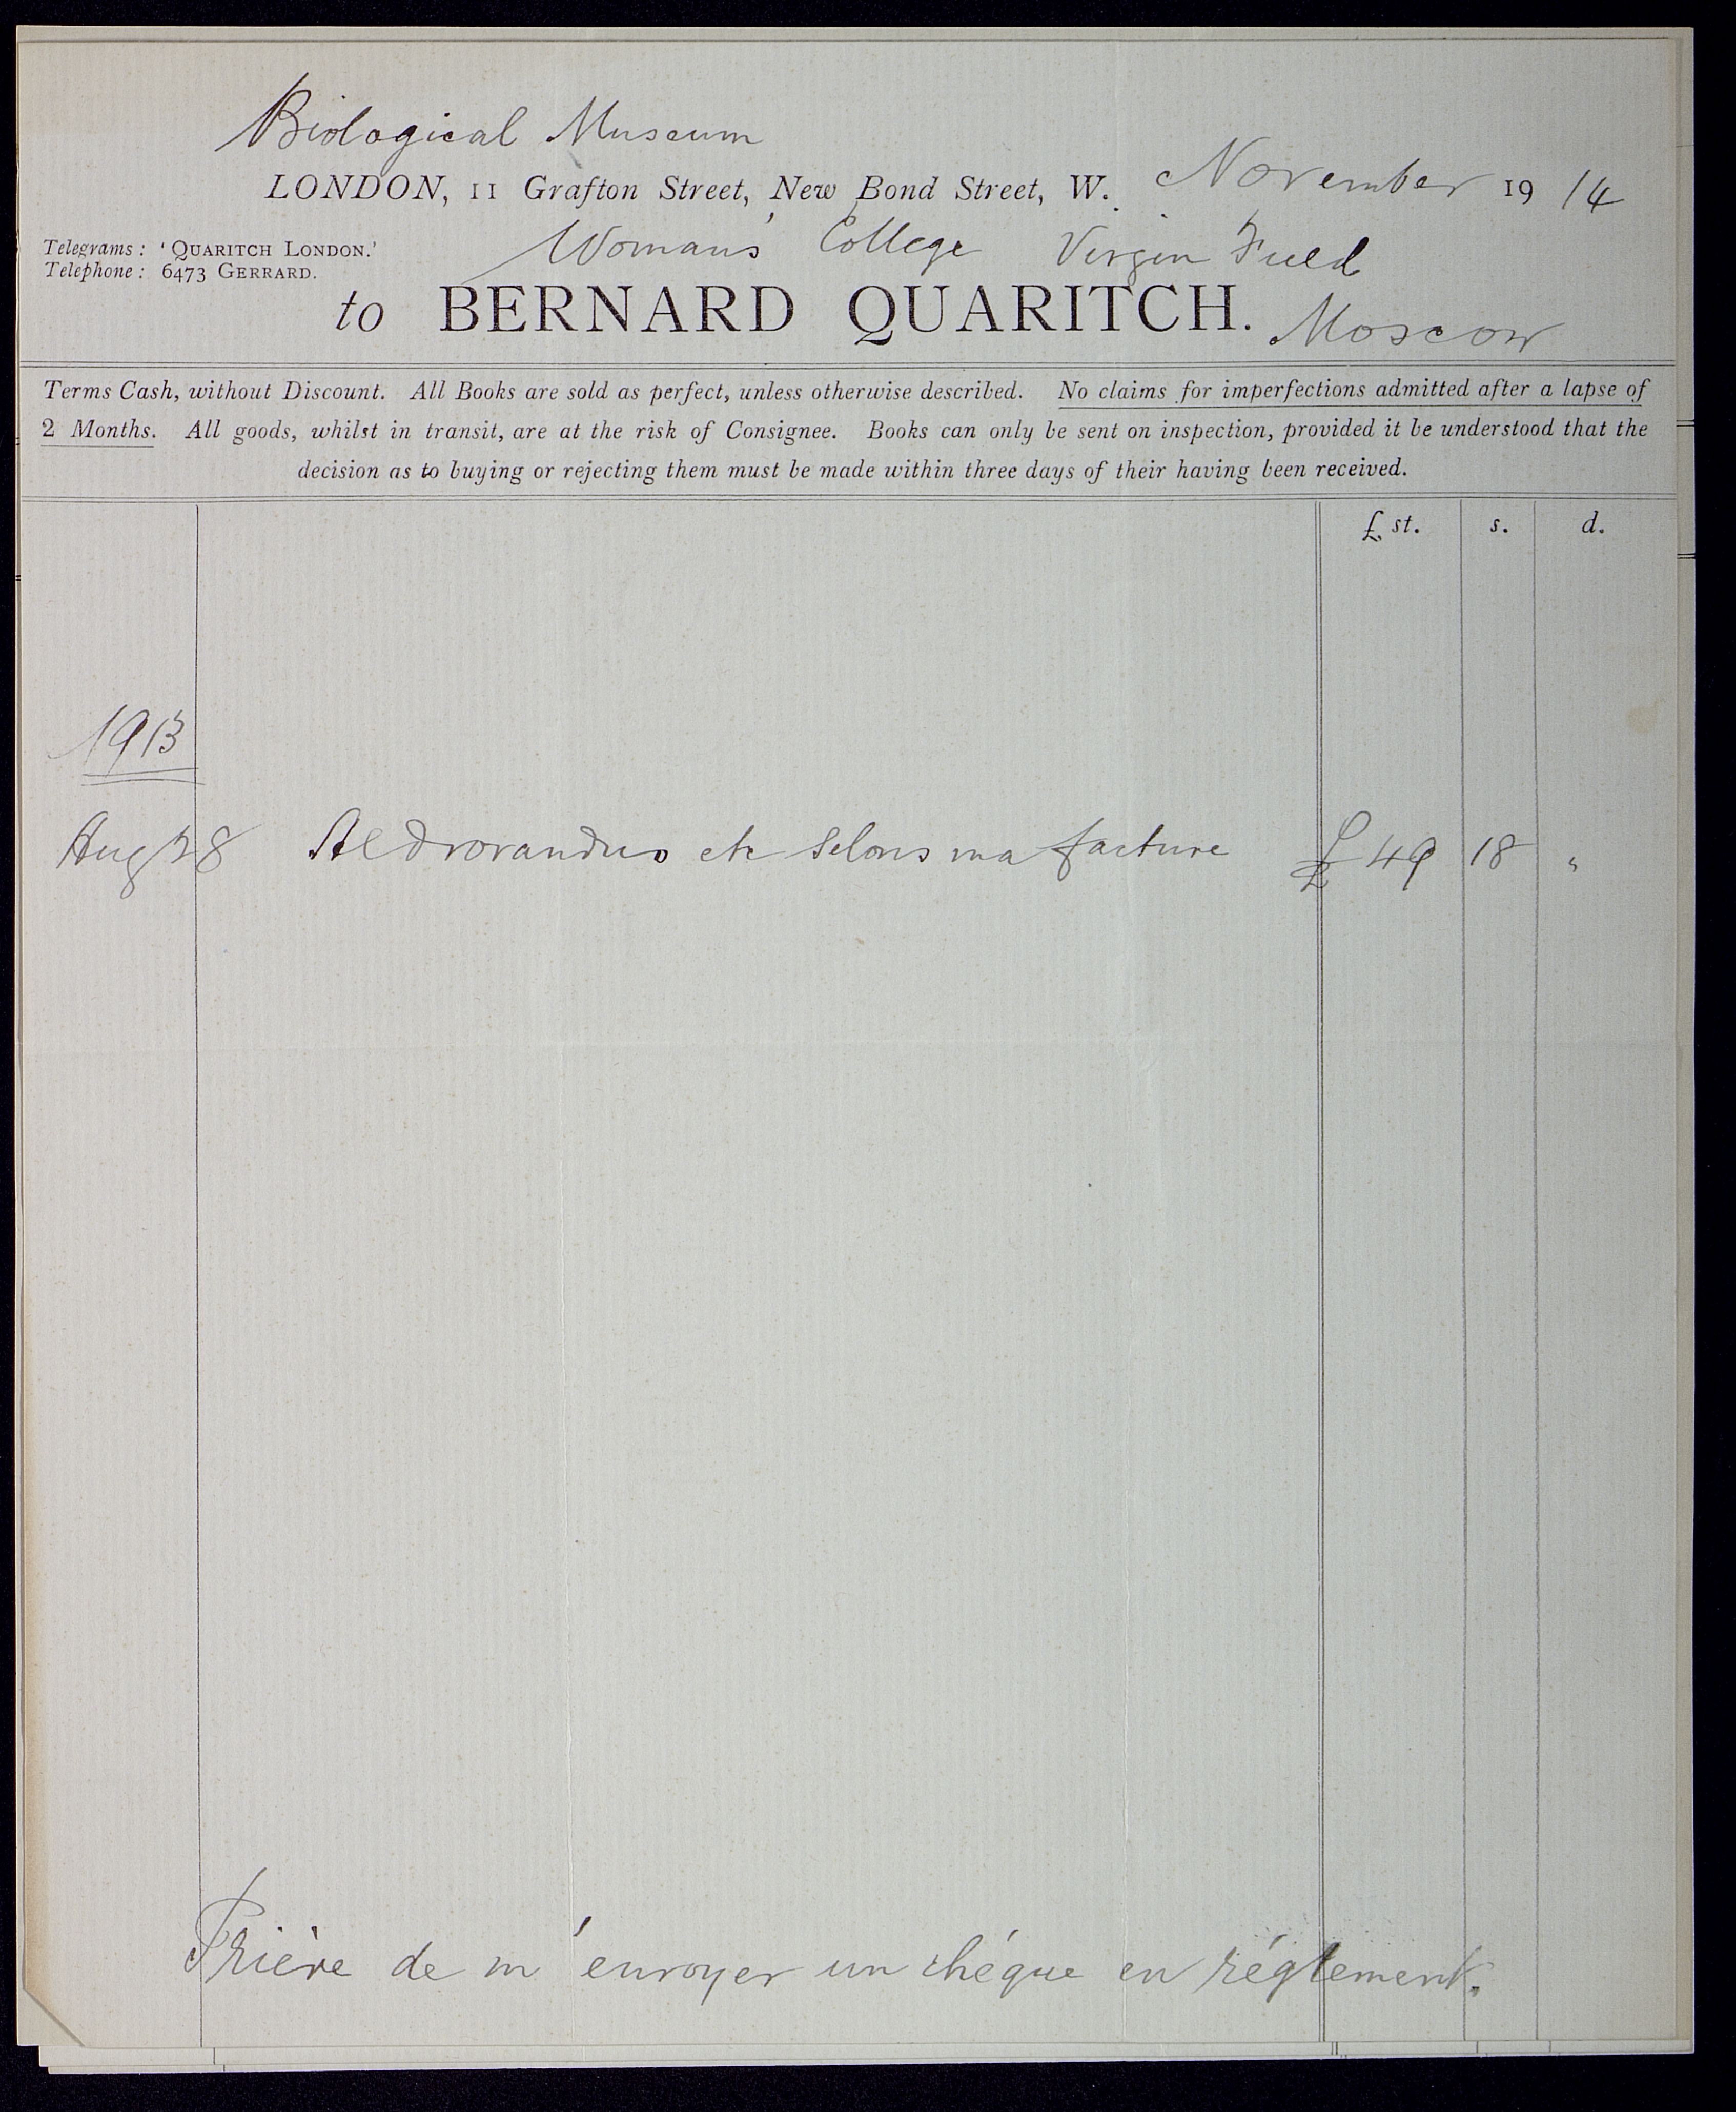 Biological Museum
LONDON, 11 Grafton Street, New Bond Street, W. November 19 14
Womans' College Virgin Field
Telegrams: 'QUARITCH LONDON.'
Telephone: 6473 GERRARD.
to BERNARD QUARITCH. Moscow
Terms Cash, without Discount. All Books are sold as perfect, unless otherwise described. No claims for imperfections admitted after a lapse of
2 Months. All goods, whilst in transit, are at the risk of Consignee. Books can only be sent on inspection, provided it be understood that the
decision as to buying or rejecting them must be made within three days of their having been received.
£ st. s. d.
1913
Aug 28 Aldrovandus etc selons ma facture £ 49 18 "
Prière de m'envoyer un chéque en réglement.